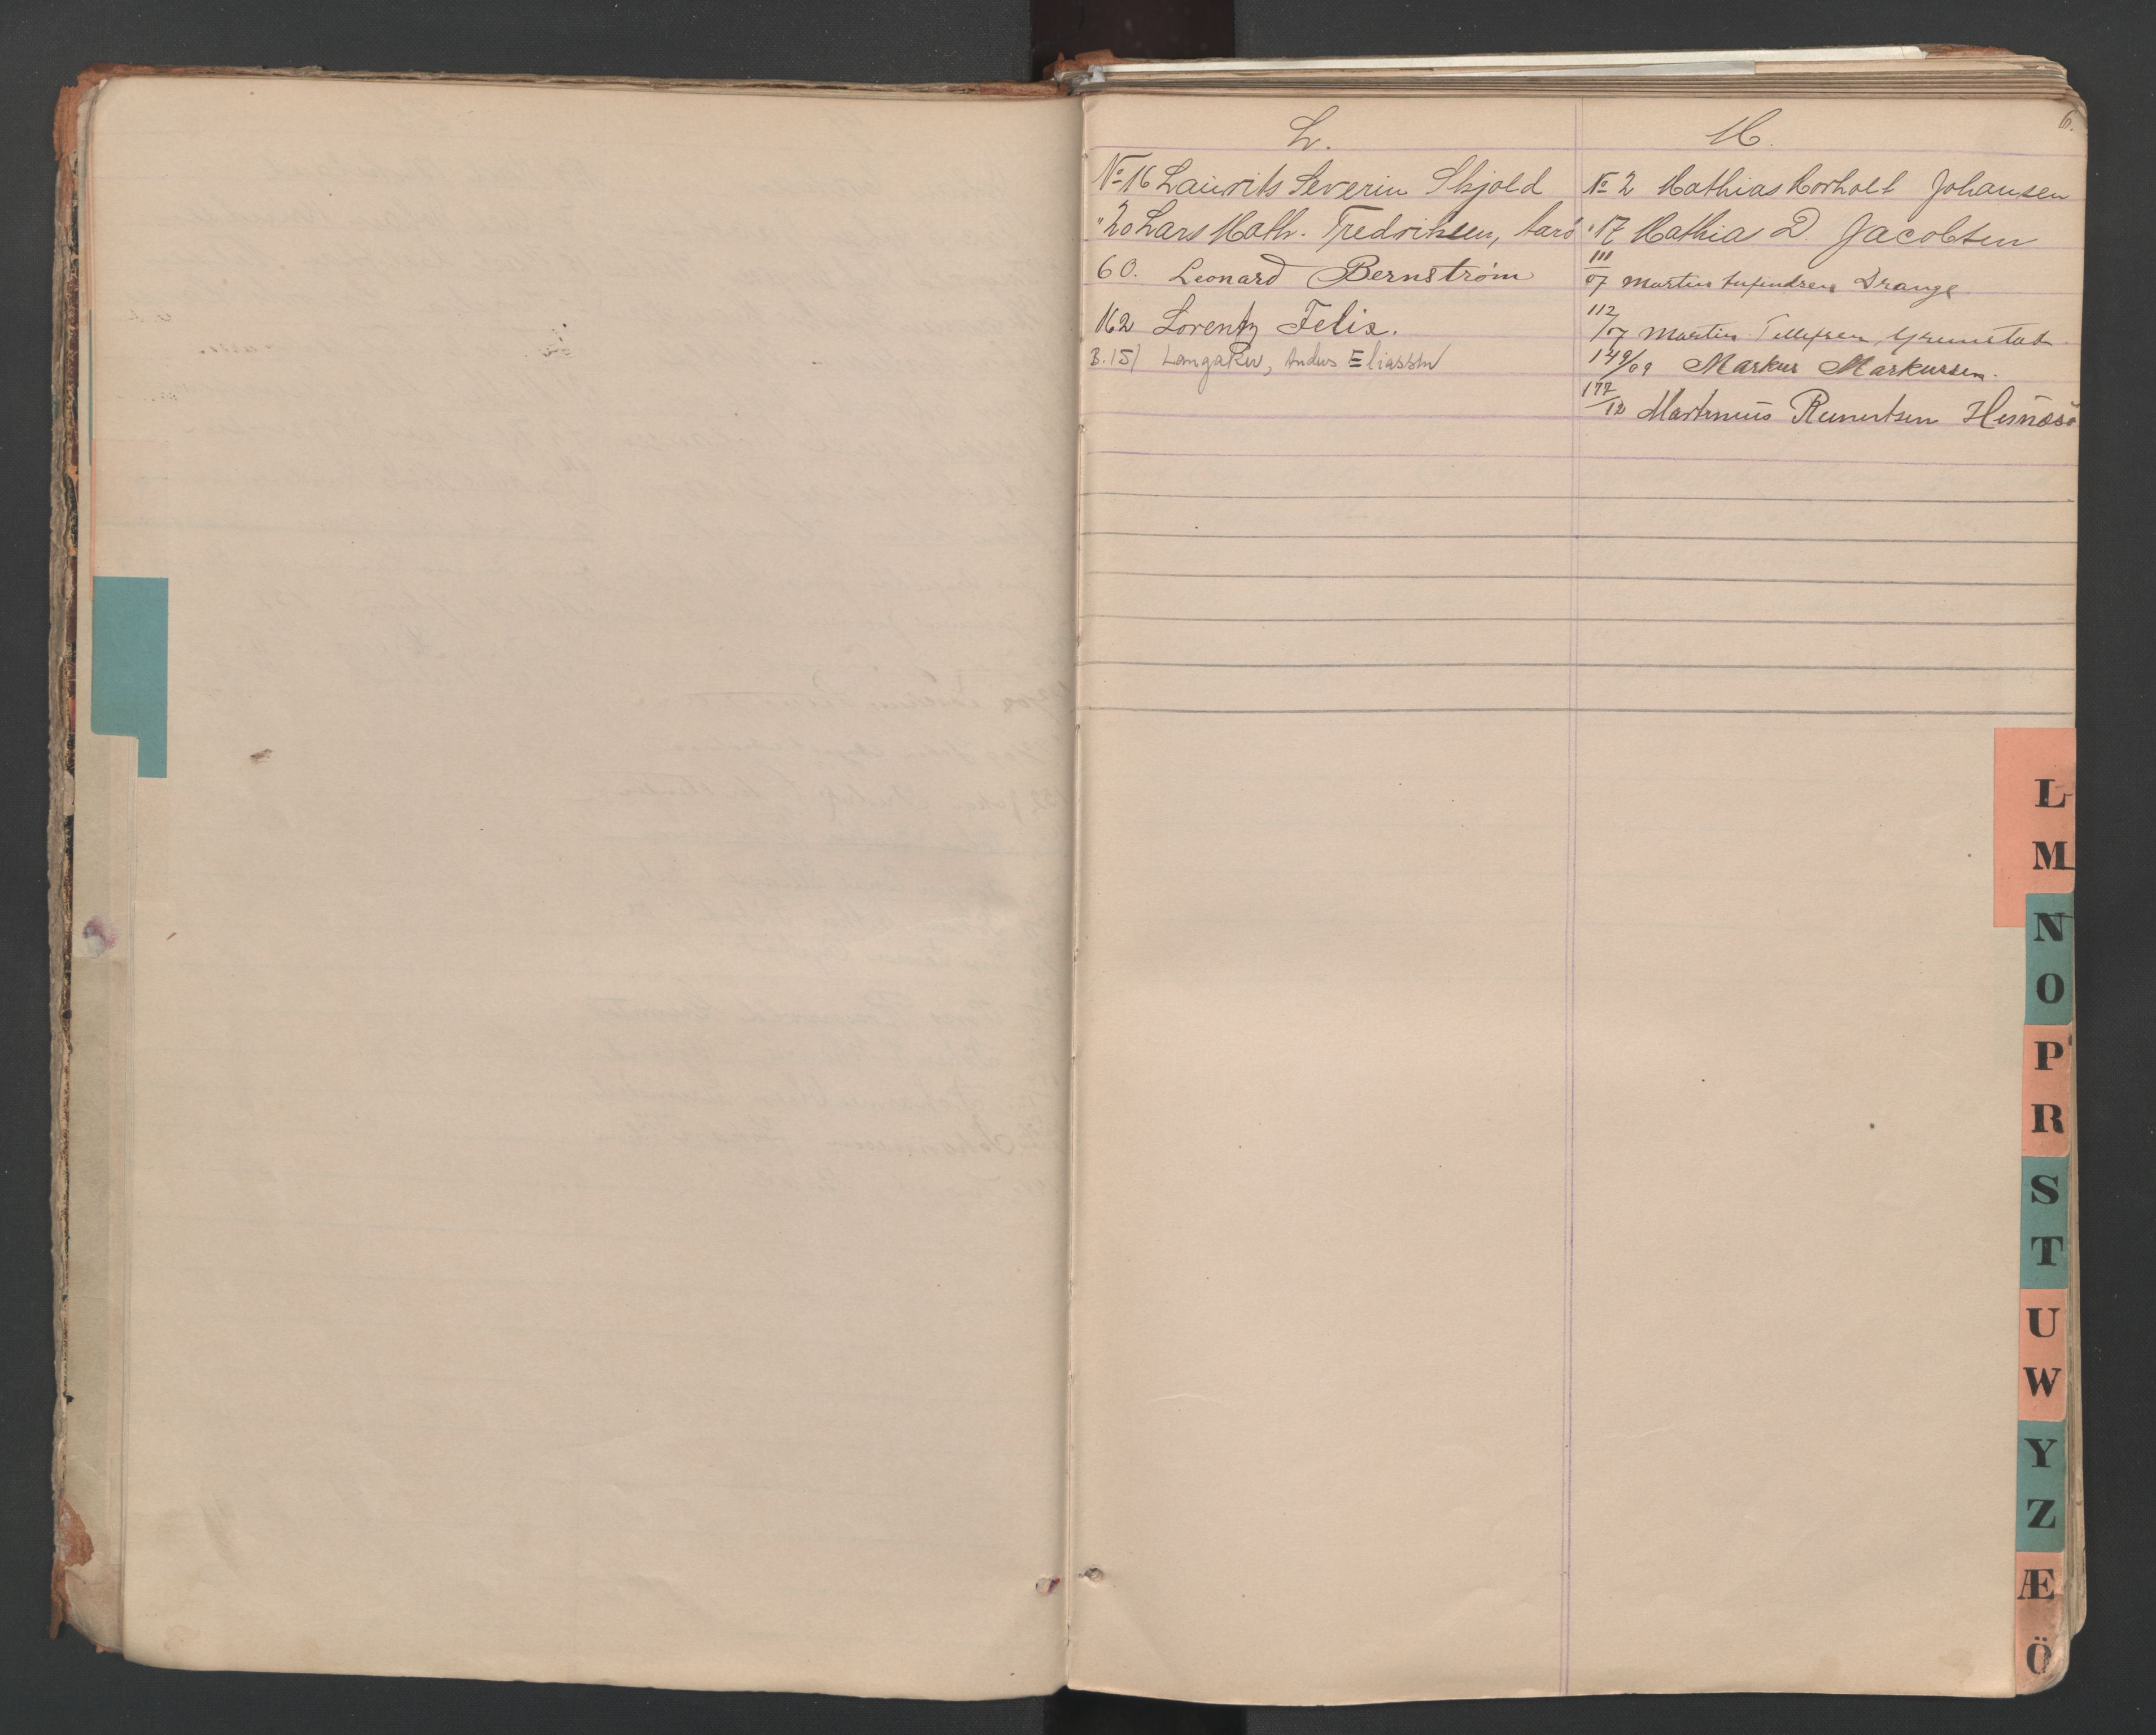 6.
L.
No 16 Laurits Severin Skjold
" 20 Lars Math. Fredriksen, Farö
60. Leonard Bernström
162 Lorentz Felix.
B. 151 Langaker, Anders Eliassen
M.
No 2 Mathias Morholt Johansen
" 17 Mathia D. Jacobsen
111/07 Martin Drange
112/07 Martin Tellefsen, Grimstad.
149/09 Markus Markussen.
177/12 Martinius Reinertsen
L
M
N
O
P
R
S
T
U
W
Y
Z
Æ
Ö